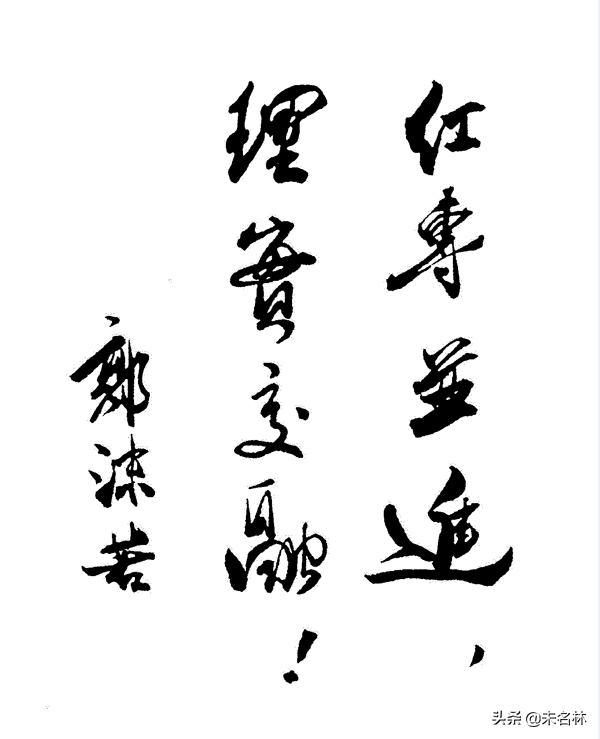 红專並進、
理實交融！
郭沫若
头条 @未名林